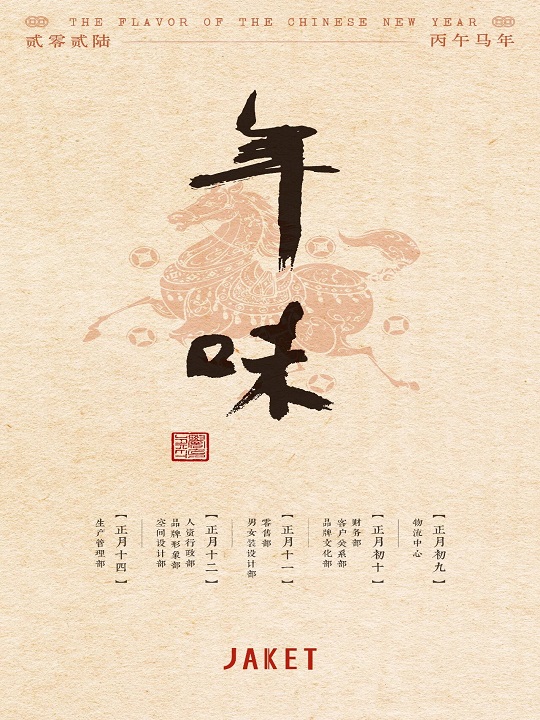 THE FLAVOR OF THE CHINESE NEW YEAR
贰零贰陆
丙午马年
年味
【正月初九】
物流中心
【正月初十】
财务部
客户关系部
品牌文化部
【正月十一】
零售部
男女装设计部
【正月十二】
人资行政部
品牌形象部
空间设计部
【正月十四】
生产管理部
JAKET